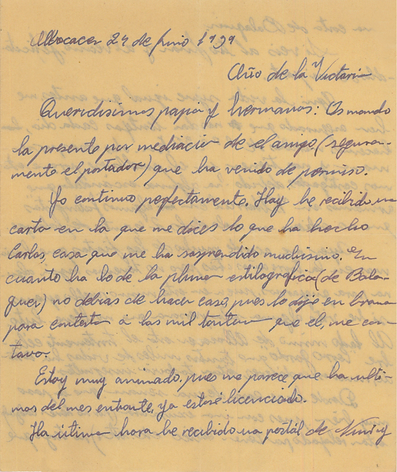 Albocacer 24 de junio 1939
Año de la Victoria
Queridisimos papa y hermanos: Os mando
la presente por mediación de el amigo (segura-
mente el portador) que ha venido de permiso.
Yo continuo perfectamente. Hoy he recibido una
carta en la que me dices lo que ha hecho
Carlos, cosa que me ha sorprendido muchisimo. En
cuanto ha lo de la pluma estilografica (de Bala-
guer) no debias de hacer caso, pues lo dije en broma
para contestar a las mil tonterias que el, me con-
tava.
Estoy muy animado, pues me parece que ha ulti-
mos del mes entrante, ya estaré licenciado.
Ha última hora he recibido una postal de